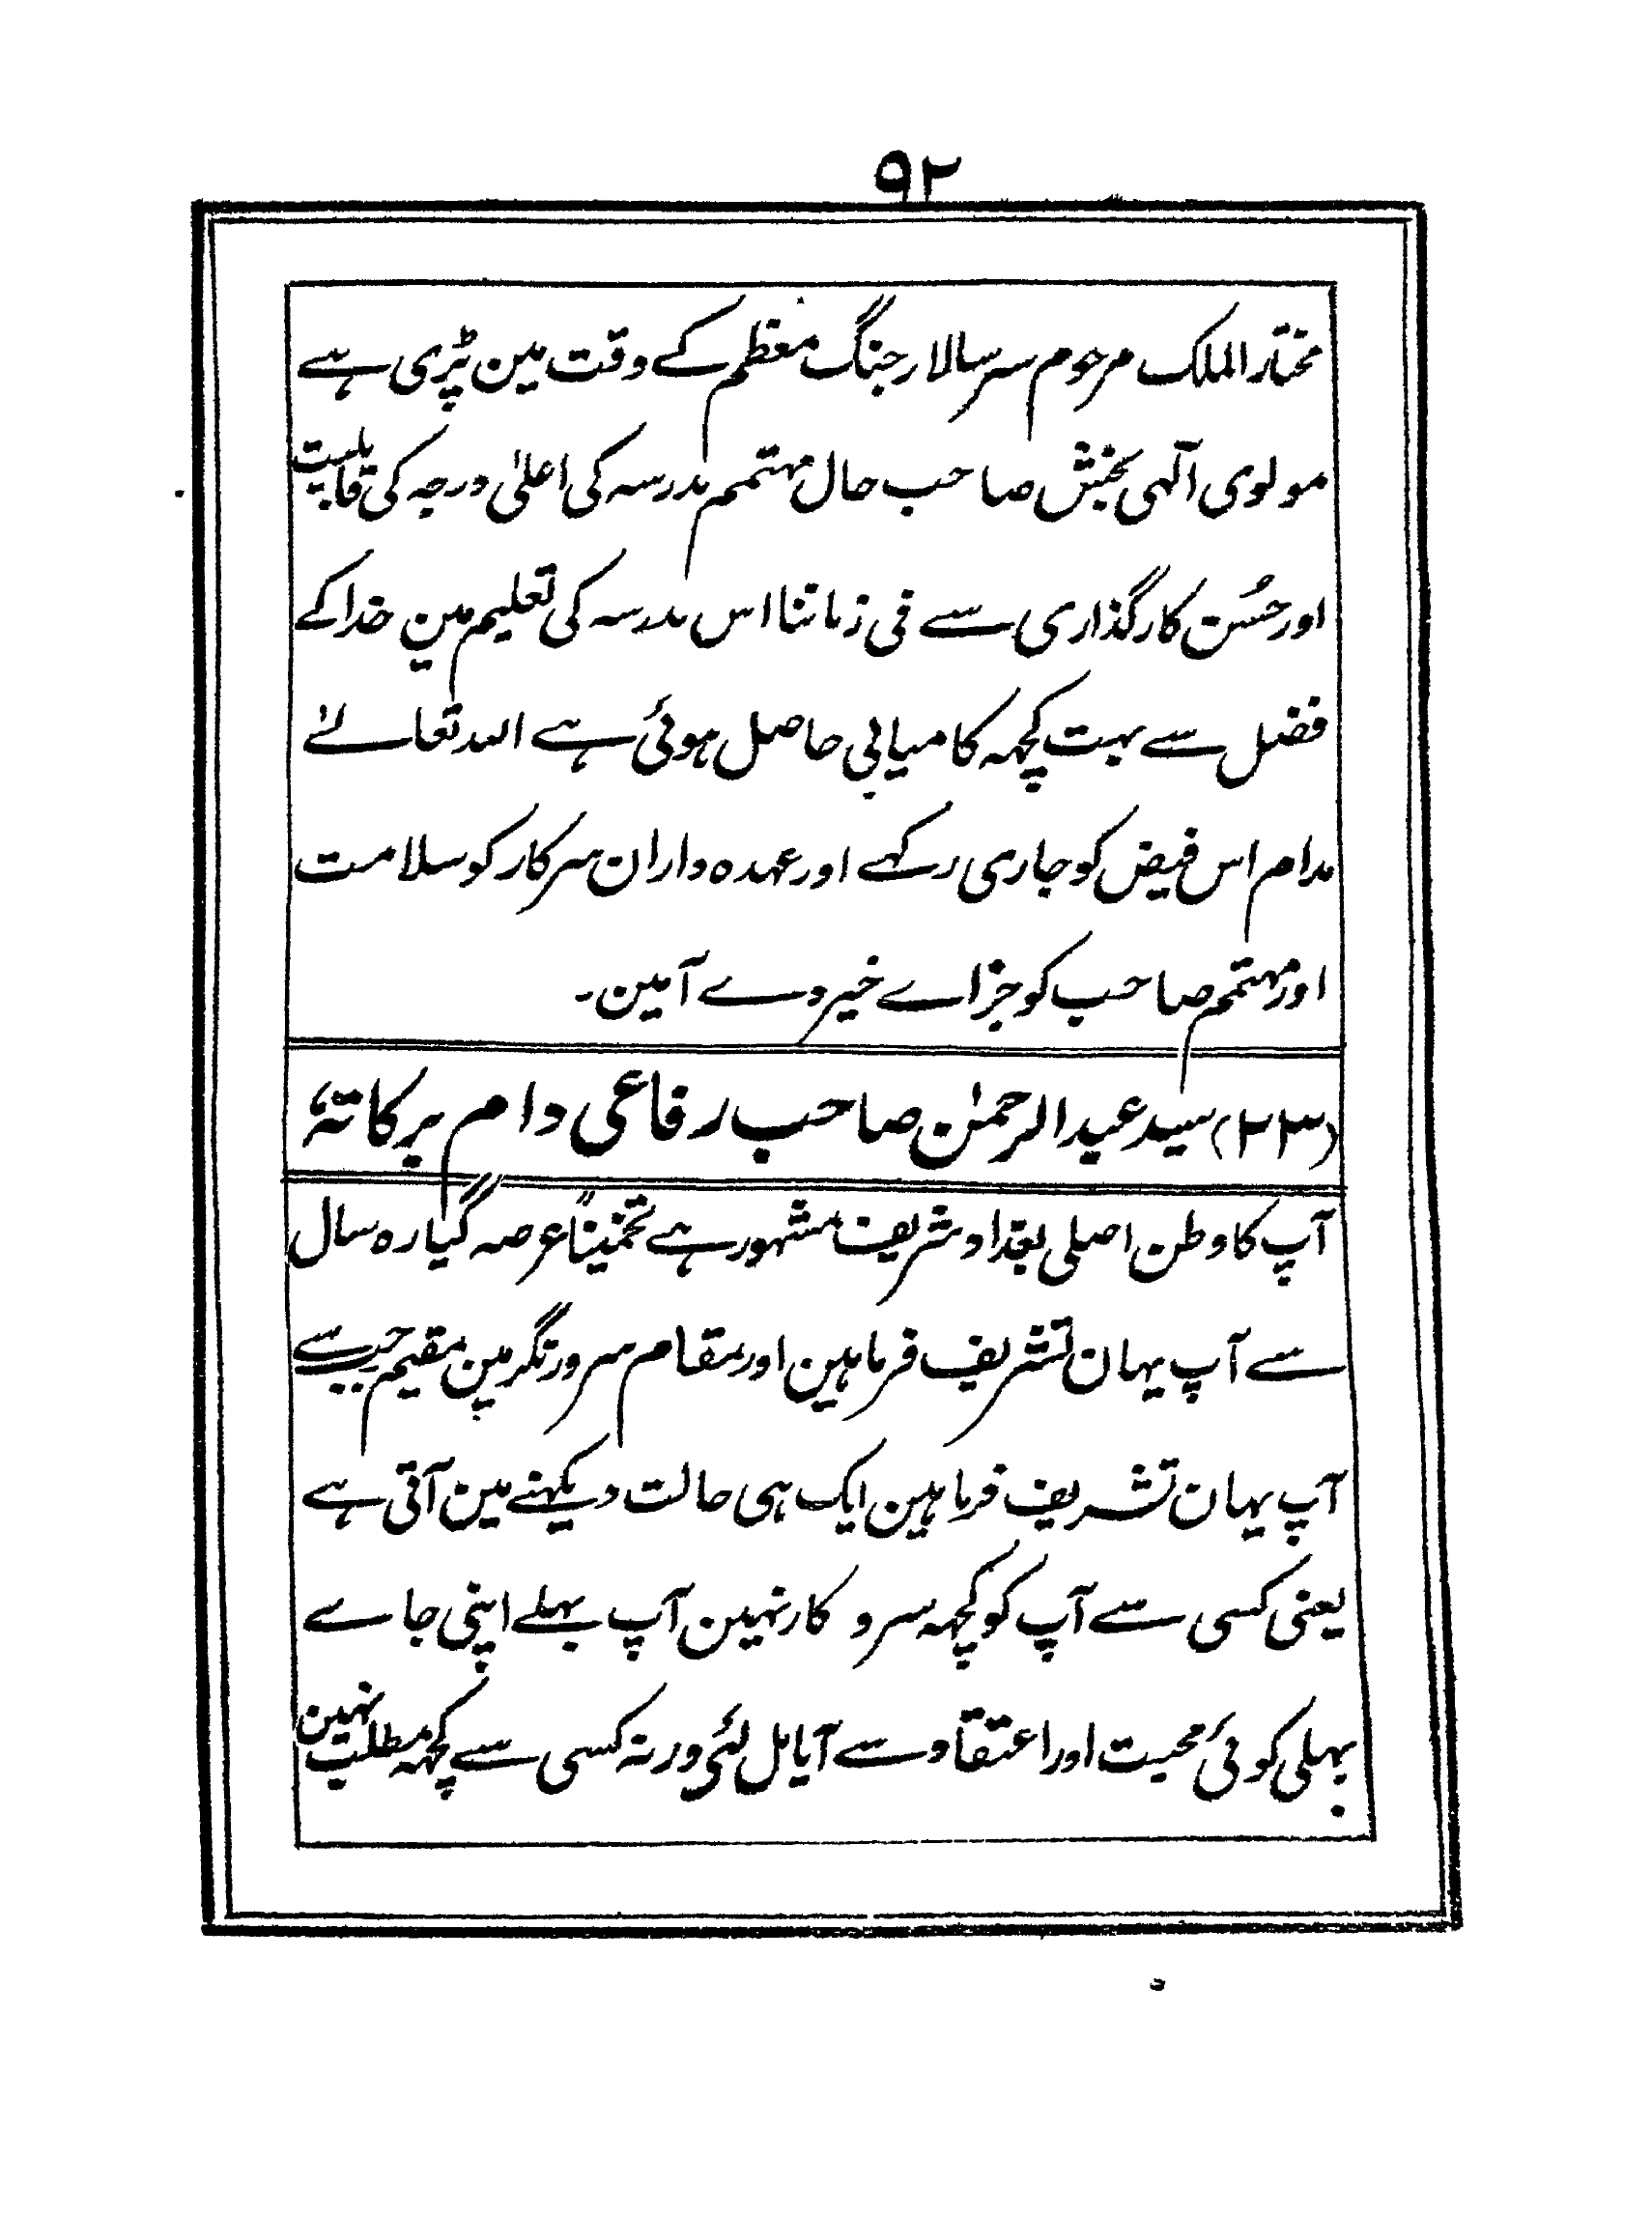 ۹۲
مختار الملک مرحوم سر سالار جنگ معظم کے وقت مین پڑی ہے
مولوی الٰہی بخش صاحب حال مہتمم مدرسہ کی اعلیٰ درجہ کی قابلیت
اور حُسن کارگذاری سے فی زماننا اس مدرسہ کی تعلیم مین خدا کے
فضل سے بہت کچہہ کامیابی حاصل ہوئی ہے اللہ تعالےٰ
مدام اس فیض کو جاری رکہے اور عہدہ داران سرکار کو سلامت
اور مہتمم صاحب کو جزاے خیر دے آمین۔
(۲۳) سید عبد الرحمٰن صاحب رفاعی دام برکاتہٗ
آپ کا وطن اصلی بغداد شریف مشہور ہے تخمیناً عرصہ گیارہ سال
سے آپ یہان تشریف فرما ہین اور بمقام سرور نگر مین مقیم جب سے
آپ یہان تشریف فرما ہین ایک ہی حالت دیکہنے مین آتی ہے
یعنی کسی سے آپ کو کچہہ سرو کار نہین آپ بہلے اپنی جاے
بہلی کوئی محبت اور اعتقاد سے آیا مل لئی ورنہ کسی سے کچہہ مطلب نہین